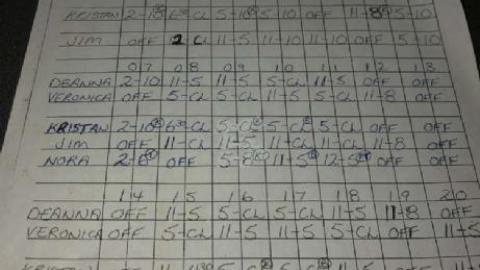 KRISTAN 2-10 6-CL 5-10 5-10 OFF 11-8 5-10
JIM OFF 2-CL 11-5 11-10 11-10 OFF 5-10
07 08 09 10 11 12 13
DEANNA 2-10 11-5 11-5 5-CL 11-5 OFF OFF
VERONICA OFF 5-CL 5-CL 11-5 5-CL 11-8 OFF
KRISTAN 2-10 6-CL 5-CL 5-CL 5-CL OFF OFF
JIM OFF 11-CL 11-5 11-CL 11-CL 11-8 OFF
NORA 2-8 OFF 5-8 11-5 12-5 OFF OFF
14 15 16 17 18 19 20
DEANNA OFF 11-5 5-CL 5-CL 11-5 11-8 OFF
VERONICA OFF 5-CL 11-5 11-5 5-CL OFF 11-5